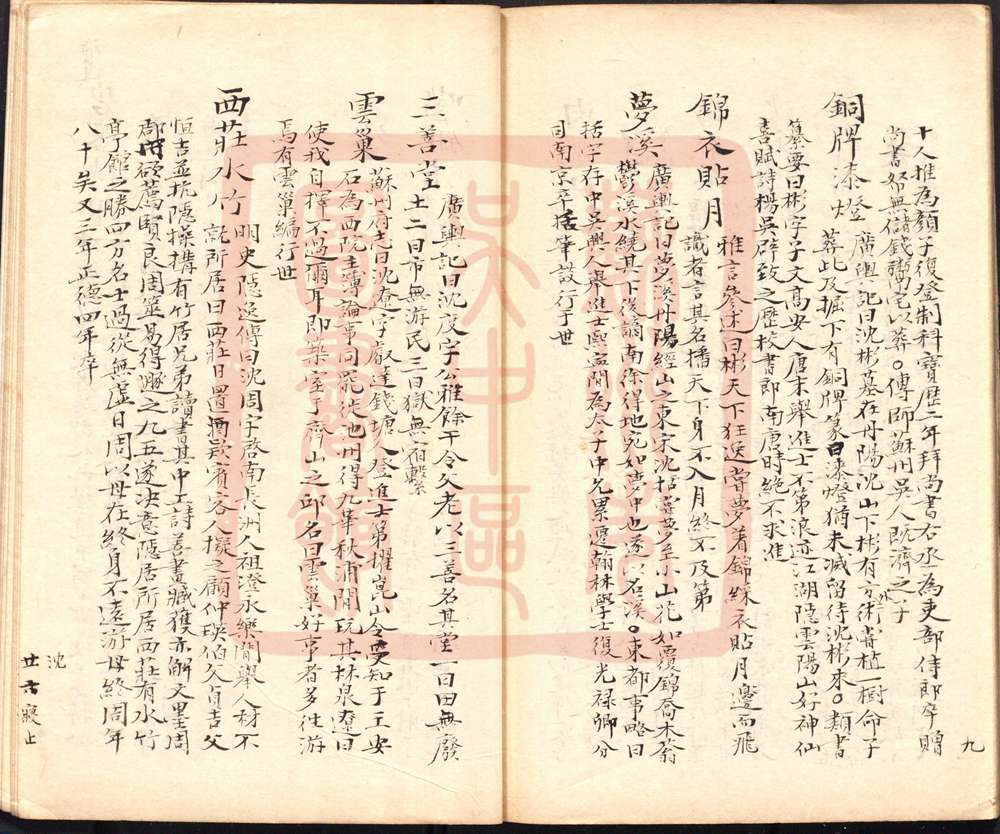 十人推為顏子復登制科寶歷二年拜尚書右丞為吏部侍郎卒贈
尚書帑無儲錢鬻宅以葬。傳師蘇州吳人既濟之子
銅牌漆燈 廣輿記曰沈彬墓在丹陽沈山下彬有方術嘗植一樹命子
葬此及掘下有銅牌篆曰漆燈猶未滅留待沈彬來。類書
纂要曰彬字子文高安人唐末舉進士不第浪迹江湖隱雲陽山好神仙
喜賦詩楊吳辟致之歷校書郎南唐時絕不求進
錦衣貼月 雅言參述曰彬天下狂逸嘗夢著錦綵衣貼月邊而飛
識者言其名播天下身不入月終不及第
夢溪 廣輿記曰夢溪丹陽經山之東宋沈括嘗夢至小山花如覆錦喬木蓊
鬱溪水繞其下後謫南徐得地宛如夢中也遂以名溪。東都事略曰
括字存中吳興人舉進士熙寧間為太子中允累遷翰林學士復光祿卿分
司南京卒括筆談行于世
九
三善堂 廣輿記曰沈度字公雅餘干令父老以三善名其堂一曰田無廢
土二曰市無游民三曰獄無宿繫
雲巢 蘇州府志曰沈遼字叡達錢塘人登進士第擢崑山令受知于王安
石為西院主簿論事同罷徙池州得九華秋浦間玩其林泉遼曰
使我自擇不過爾耳即築室于齊山之邱名曰雲巢好事者多往游
焉有雲巢編行世
西莊水竹 明史隱逸傳曰沈周字啓南長洲人祖澄永樂間舉人材不
就所居曰西莊日置酒款賓客人擬之顧仲瑛伯父貞吉父
恒吉並抗隱搆有竹居兄弟讀書其中工詩善畫臧獲亦解文墨周
郡守欲薦賢良周筮易得豚之九五遂決意隱居所居西莊有水竹
亭館之勝四方名士過從無虛日周以母在終身不遠游母終周年
八十矣又三年正德四年卒
沈